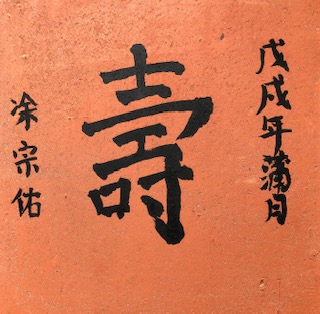 戊戌年蒲月
壽
涂宗佑